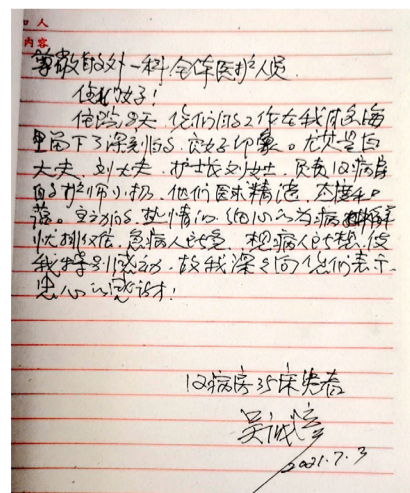 人
内容
尊敬的外一科全体医护人员
您们好！
住院8天，您们的工作在我脑海
里留下了深刻的、良好印象。尤其是白
大夫、刘大夫、护士长刘女士，负责12病房
的护师小杨，他们医术精湛，态度和
蔼。主动的、热情的、细心的为病解
忧排，急病人所急，想病人所想，使
我特别感动，故我深深向您们表示
忠心的感谢！
12病房35床患者
吴
2021.7.3